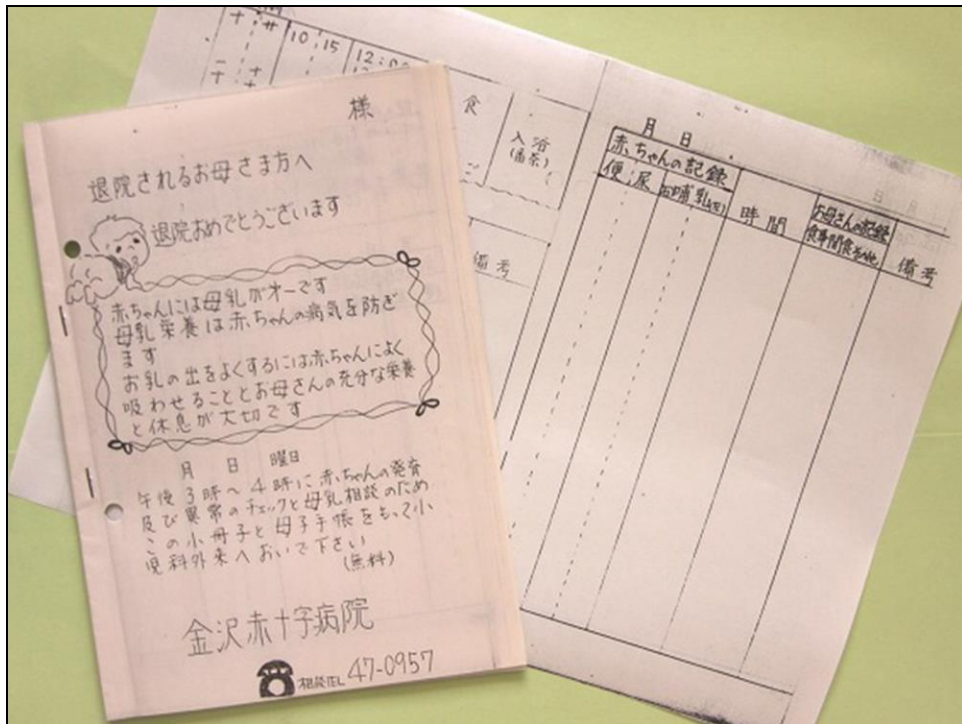 様
退院されるお母さま方へ
退院おめでとうございます
赤ちゃんには母乳がオ一です
母乳栄養は赤ちゃんの病気を防ぎ
ます
お乳の出をよくするには赤ちゃんによく
吸わせることとお母さんの充分な栄養
と休息が大切です
月 日 曜日
午後3時~4時に赤ちゃんの発育
及び異常のチェックと母乳相談のため
この小冊子と母子手帳をもって小
児科外来へおいで下さい
(無料)
金沢赤十字病院
相談TEL 47-0957
10 15
12:00
食
入浴
備考
月 日
赤ちゃんの記録
便 尿
時間
お母さんの記録
食事間食その他
備考